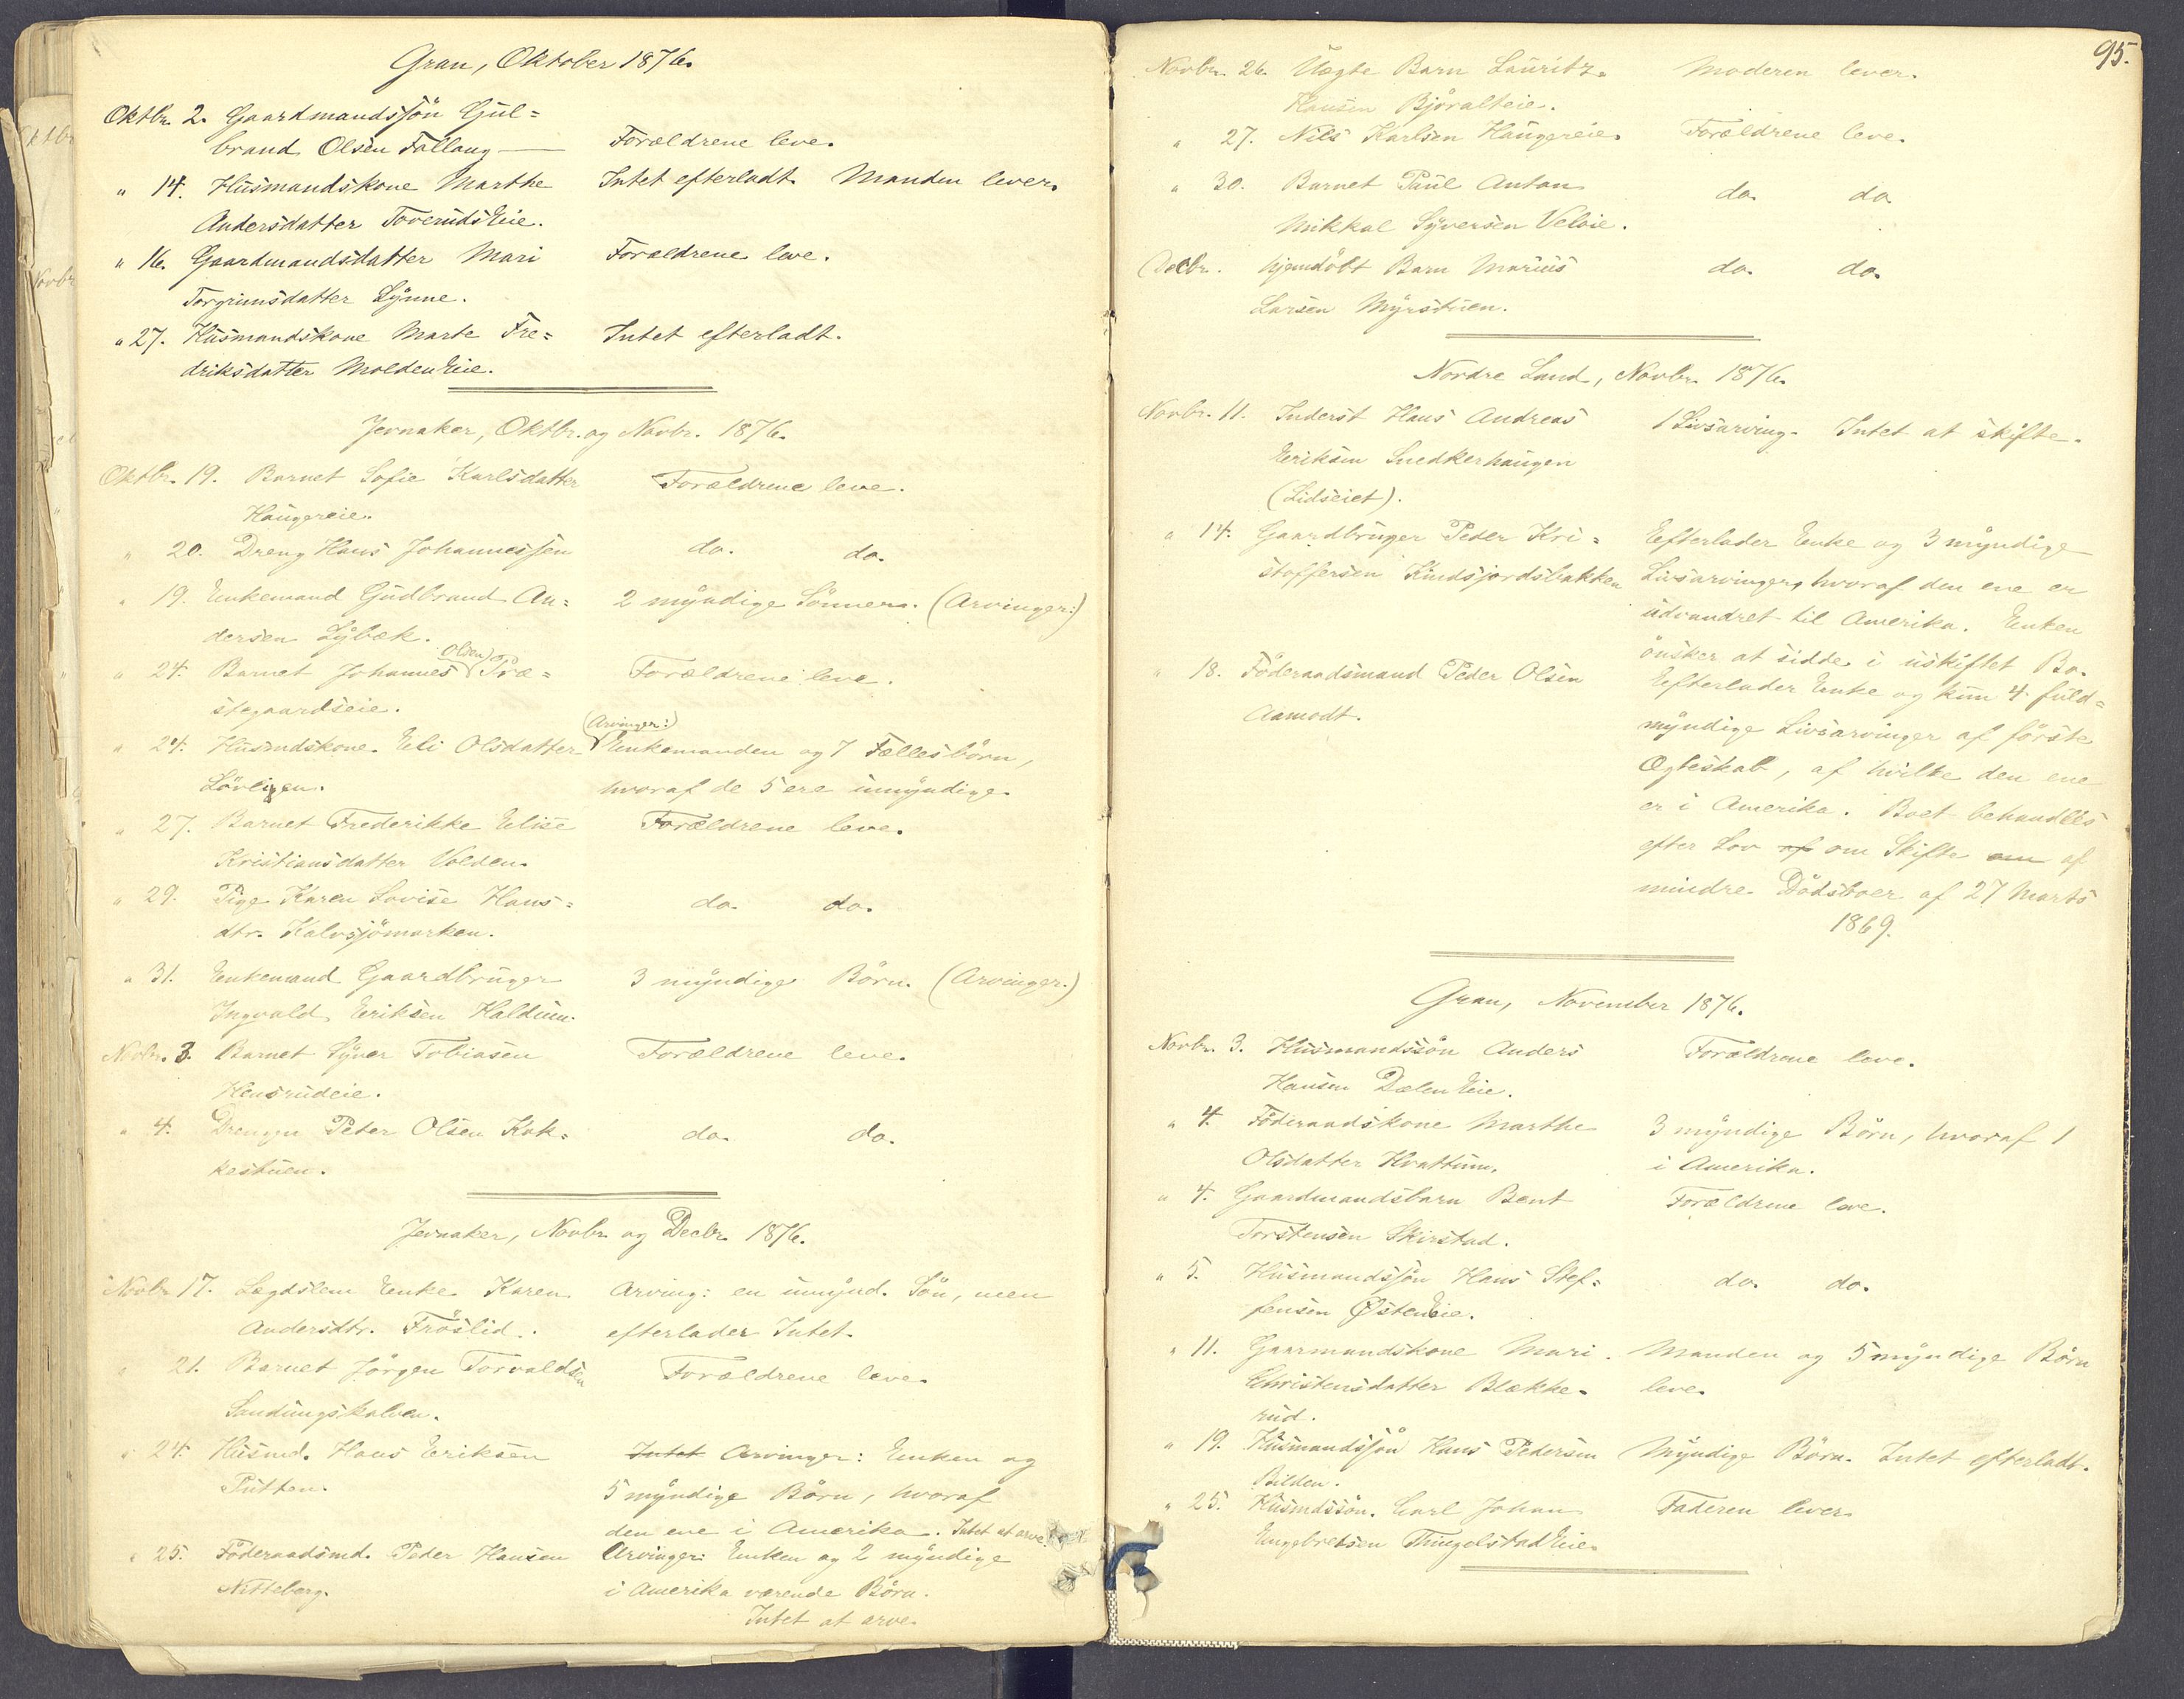 Gran, Oktober 1876.
Oktbr. 2. Gaardmandssön Gul=
brand Olsen Fallang — Forældrene leve.
" 14. Husmandskone Marthe Intet efterladt. Manden lever.
Andersdatter ToverudsEie.
" 16. Gaardmandsdatter Mari Forældrene leve.
Torgrimsdatter Lynne.
" 27. Husmandskone Marte Fre= Intet efterladt.
driksdatter MoldenEie.
Jevnaker, Oktbr. og Novbr. 1876.
Oktbr. 19. Barnet Sofie Karlsdatter Forældrene leve.
Haugereie.
" 20. Dreng Hans Johannessen do. do.
" 19. Enkemand Gudbrand An= 2 myndige Sönner. (Arvinger:)
dersen Lybæk.
" 24. Barnet Johannes (Olsen) Præ= Forældrene leve.
stegaardseie.
" 24. Husmdskone. Eli Olsdatter (Arvinger:) Enkemanden og 7 Fællesbörn,
Lövligen. hvoraf de 5 ere umyndige.
" 27. Barnet Frederikke Elise Forældrene leve.
Kristiansdatter Volden.
" 29. Pige Karen Lovise Hans= do. do.
dtr. Kalvsjömarken.
" 31. Enkemand Gaardbruger 3 myndige Börn. (Arvinger.)
Ingvald Eriksen Haldum.
Novbr. 3. Barnet Syver Tobiasen Forældrene leve.
Hensrudeie.
" 4. Drengen Peter Olsen Kok= do. do.
kestuen.
Jevnaker, Novbr. og Decbr. 1876.
Novbr. 17. Lægdslem Enke Karen Arving: en umynd. Sön, men
Andersdtr. Fröslid. efterlader Intet.
" 21. Barnet Jörgen Torvaldsen Forældrene leve.
Sandungskalven.
" 24. Husmd. Hans Eriksen Intet Arvinger: Enken og
Putten. 5 myndige Börn, hvoraf
den ene i Amerika. Intet at arve.
" 25. Föderaadsmd. Peder Hansen Arvinger: Enken og 2 myndige
Nitteberg. i Amerika værende Börn.
Intet at arve.
95.
Novbr. 26. Uægte Barn Lauritz Moderen lever.
Hansen Björalteie.
" 27. Nils Karlsen Haugereie. Forældrene leve.
" 30. Barnet Paul Anton do. do.
Mikkal Syversen Veloie.
Decbr. hjemdöbt Barn Marius do. do.
Larsen Myrstuen.
Nordre Land, Novbr. 1876.
Novbr. 11. Inderst Hans Andreas 1 Livsarving. Intet at skifte.
Eriksen Snedkerhaugen
(Lidseiet).
" 14. Gaardbruger Peder Kri= Efterlader Enke og 3 myndige
stoffersen Kindsjordsbakken Livsarvinger, hvoraf den ene er
udvandret til Amerika. Enken
önsker at sidde i uskiftet Bo.
" 18. Föderaadsmand Peder Olsen Efterlader Enke og kun 4 fuld=
Aamodt. myndige Livsarvinger af förste
Ægteskab, af hvilke den ene
er i Amerika. Boet behandles
efter Lov af om Skifte om af
mindre Dödsboer af 27 Marts
1869.
Gran, November 1876.
Novbr. 3. Husmandssön Anders Forældrene leve.
Hansen DælenEie.
" 4. Föderaadskone Marthe 3 myndige Börn, hvoraf 1
Olsdatter Hvattum. i Amerika.
" 4. Gaardmandsbarn Bent Forældrene leve.
Torstensen Skirstad.
" 5. Husmandssön Hans Stef= do. do.
fensen ØstenEie.
" 11. Gaarmandskone Mari Manden og 5 myndige Börn
Christensdatter Blække- leve.
rud.
" 19. Husmandssön Hans Pedersen Myndige Börn. Intet efterladt.
Bilden.
" 25. Husmdssön. Carl Johan Faderen lever
Engebretsen ThingelstadEie.